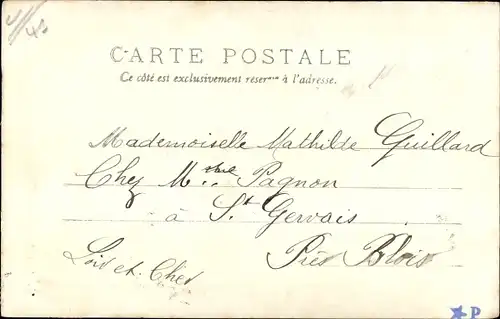 CARTE POSTALE
Ce côté est exclusivement réservé à l'adresse.
Mademoiselle Mathilde Guillard
Chez Mme Pagnon
à St Gervais
Loir et Cher Près Blois
P